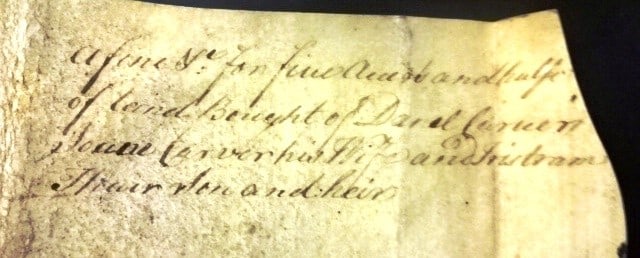 A fine &c. for five Acres and halfe
of land Bought of Danel Carver
Carver his Wife and tristram
their Son and heir